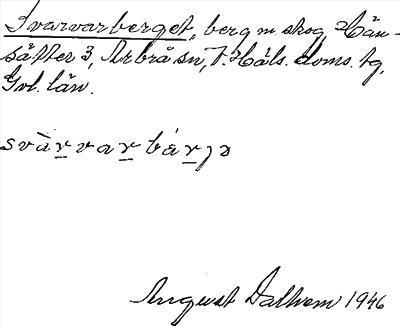 Svarvarberget, berg m. skog, Hän-
sätter 3, Arbrå sn, V. Häls. doms. tg,
Gvl. län.
svàr̲var̲bá̀r̲jə
August Dalhem 1946